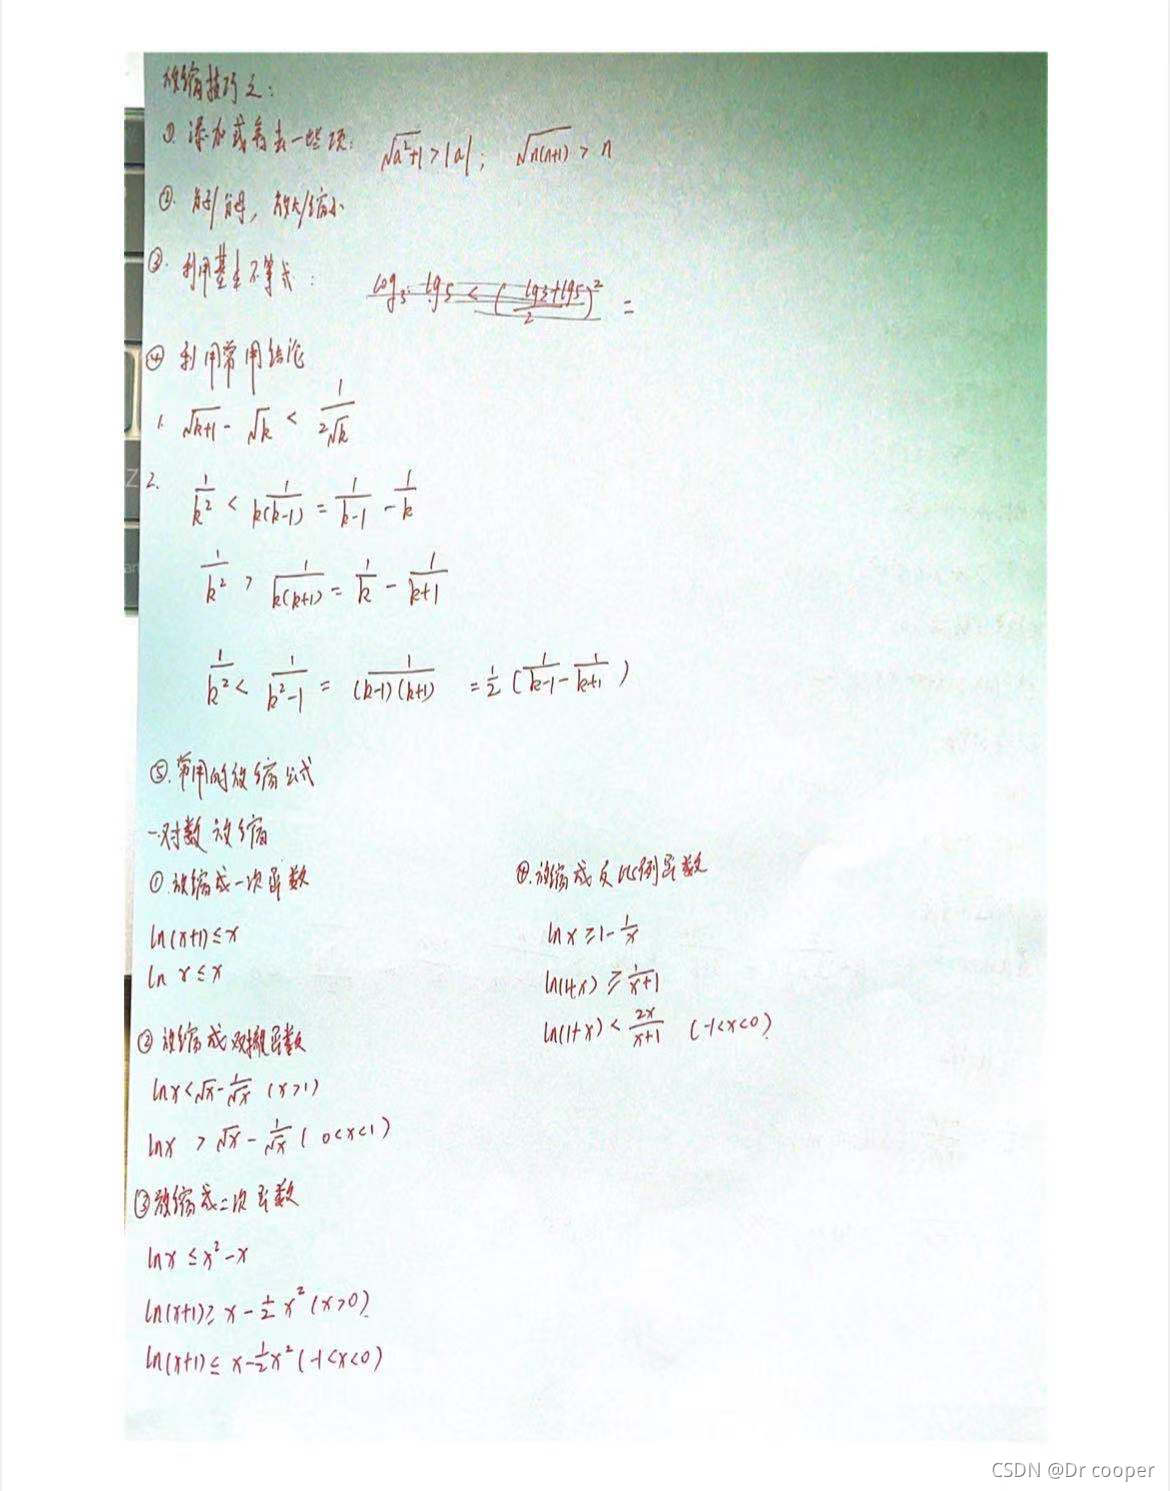 放缩技巧之:
①. 添加或舍去一些项: √(a²+1) > |a|; √(n(n+1)) > n
②. 分子/分母, 放大/缩小
③. 利用基本不等式:
log3·lg5 < ((lg3+lg5)/2)² =
④ 利用常用结论
1. √(k+1) - √k < 1/(2√k)
2. 1/k² < 1/(k(k-1)) = 1/(k-1) - 1/k
1/k² > 1/(k(k+1)) = 1/k - 1/(k+1)
1/k² < 1/(k²-1) = 1/((k-1)(k+1)) = 1/2 (1/(k-1) - 1/(k+1))
⑤. 常用的放缩公式
一.对数放缩
①.放缩成一次函数
ln(x+1) ≤ x
ln x ≤ x
② 放缩成双撇函数
lnx < √x - 1/√x (x>1)
lnx > √x - 1/√x (0<x<1)
③放缩成二次函数
lnx ≤ x² - x
ln(x+1) ≥ x - 1/2 x² (x>0)
ln(x+1) ≤ x - 1/2 x² (-1<x<0)
④.放缩成反比例函数
lnx ≥ 1 - 1/x
ln(1+x) ≥ 1/(x+1)
ln(1+x) < 2x/(x+1) (-1<x<0)
Z
CSDN @Dr cooper